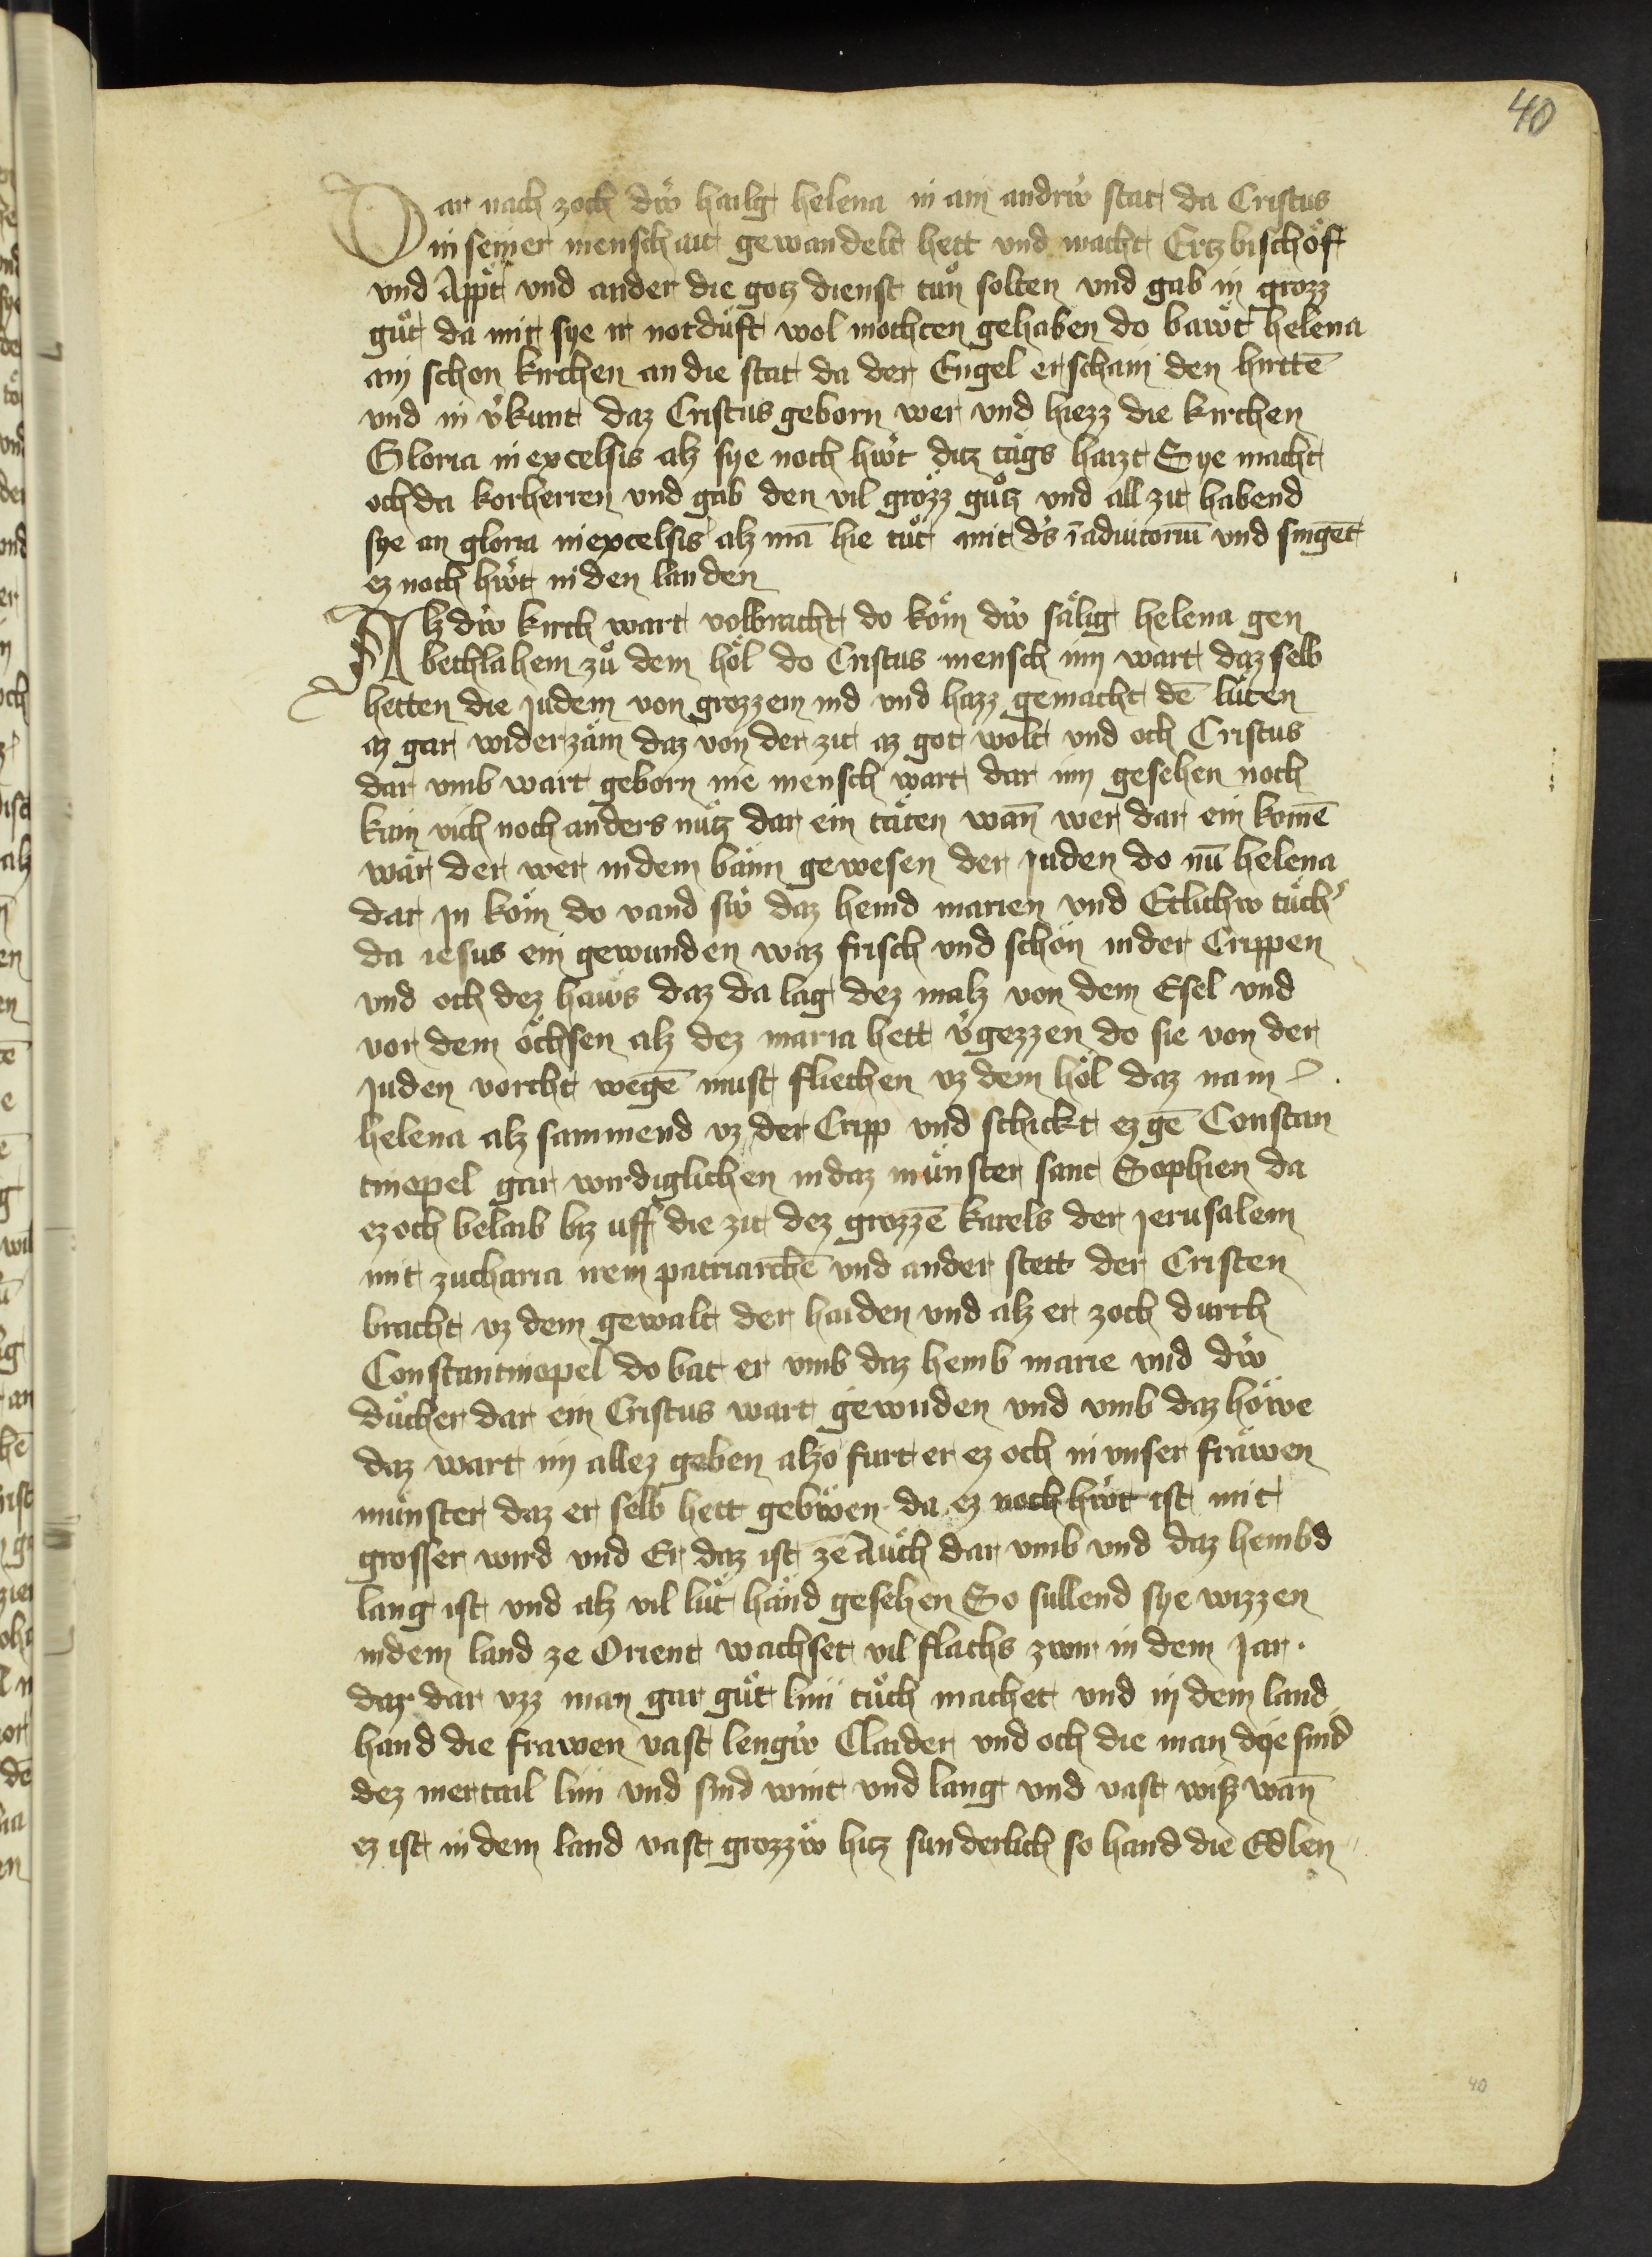 40
Dar nach zoch dẇ hailg helena in ain andrẇ stat da Cristus
in seiner menschait gewandelt hett vnd macht Ertzbischöff
vnd Äppt vnd ander die gotz dienst tůn solten vnd gab in grozz
gůt da mit sye ir notdůft wol mochten gehaben do bawẗ helena
ain schon kirchen an die stat da der Engel erschain den hirttē
vnd in v̓kunt daz Cristus geborn wer vnd hiezz die kirchen
Gloria in excelsis alz sye noch hẇt diz tägs haizt Sye macht
och da korherren vnd gab den vil grözz gůtz vnd all zit habend
sye an gloria in excelsis alz mā hie tůt mit dˢs ī adiutoriū vnd singet
ez noch hẇt in den landen
Alz dẇ kirch wart volbracht do köm dẇ sälig helena gen
bethlahem zů dem höl do Cristus mensch inn wart daz selb
hetten die Judem von grozzem nid vnd hazz gemacht dē lüten
az gar widerzäm daz von der zit az got wolt vnd och Cristus
dar vmb wart geborn nie mensch wart dar inn gesehen noch
kain vich noch anders nütz dar ein täten wan̄ wer dar ein komē
wär der wer in dem bänn gewesen der Juden do nū helena
dar jn köm do vand sẇ daz hemd marien vnd Etlichw tüch̓
da iesus ein gewunden waz frisch vnd schön in der Crippen
vnd och dez haws daz da lag dez malz von dem Esel vnd
vor dem öchsen alz dez maria hett v̓gezzen do sie von der
Juden vorcht wegē must fliechen vz dem höl daz nam
helena alz sammend vz der Cripp vnd schickt ez gē Constan
tinopel gar wirdiglichen in daz münster sant Sophien da
ez och belaib biz uff die zit dez grozzē karels der Jerusalem
mit zacharia irem patriarchē vnd ander stett der Cristen
bracht vz dem gewalt der haiden vnd alz er zoch durch
Constantinopel do bat er vmb daz hemb marie vnd dẇ
dücher dar ein Cristus wart gewnden vnd vmb daz höwe
daz wart im allez geben alzo furt er ez och in vnser fräwen
münster daz er selb hett gebẅen da ez noch hẇt ist mit
grosser wird vnd Er daz ist zē Äuch dar vmb vnd daz hembd
lang ist vnd alz vil lüt händ gesehen So sullend sye wizzen
in dem land ze Orient wachset vil flachs zwir in dem Jar.
daz dar vzz man gar gůt lini tůch machet vnd in dem land
hand die frawen vast lengẇ Claider vnd och die man dye sind
dez mertail lini vnd sind wint vnd lang vnd vast wisz wan̄
ez ist in dem land vast grozzẅ hitz sunderlich so hand die Edlen
40